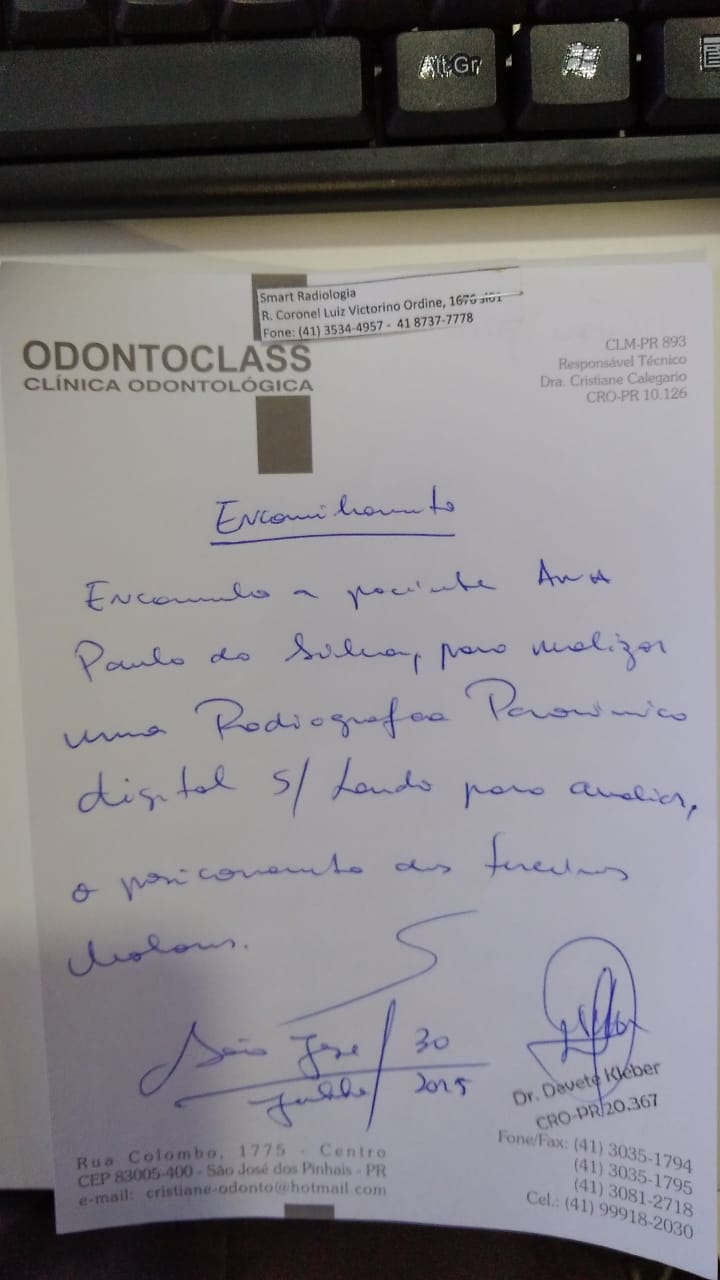 Alt Gr
Smart Radiologia
R. Coronel Luiz Victorino Ordine, 1676 sl01
Fone: (41) 3534-4957 - 41 8737-7778
ODONTOCLASS
CLÍNICA ODONTOLÓGICA
CLM-PR 893
Responsável Técnico
Dra. Cristiane Calegario
CRO-PR 10.126
Encaminhamento
Encaminho a paciente Ana
Paula da Silva, para realizar
uma Radiografia Panorâmica
digital s/ Laudo para avaliar,
o posicionamento dos terceiros
Molares.
São José / 30
Julho / 2025
Dr. Devete Kleber
CRO-PR/20.367
Rua Colombo, 1775 - Centro
CEP 83005-400 - São José dos Pinhais - PR
e-mail: cristiane-odonto@hotmail.com
Fone/Fax: (41) 3035-1794
(41) 3035-1795
(41) 3081-2718
Cel.: (41) 99918-2030